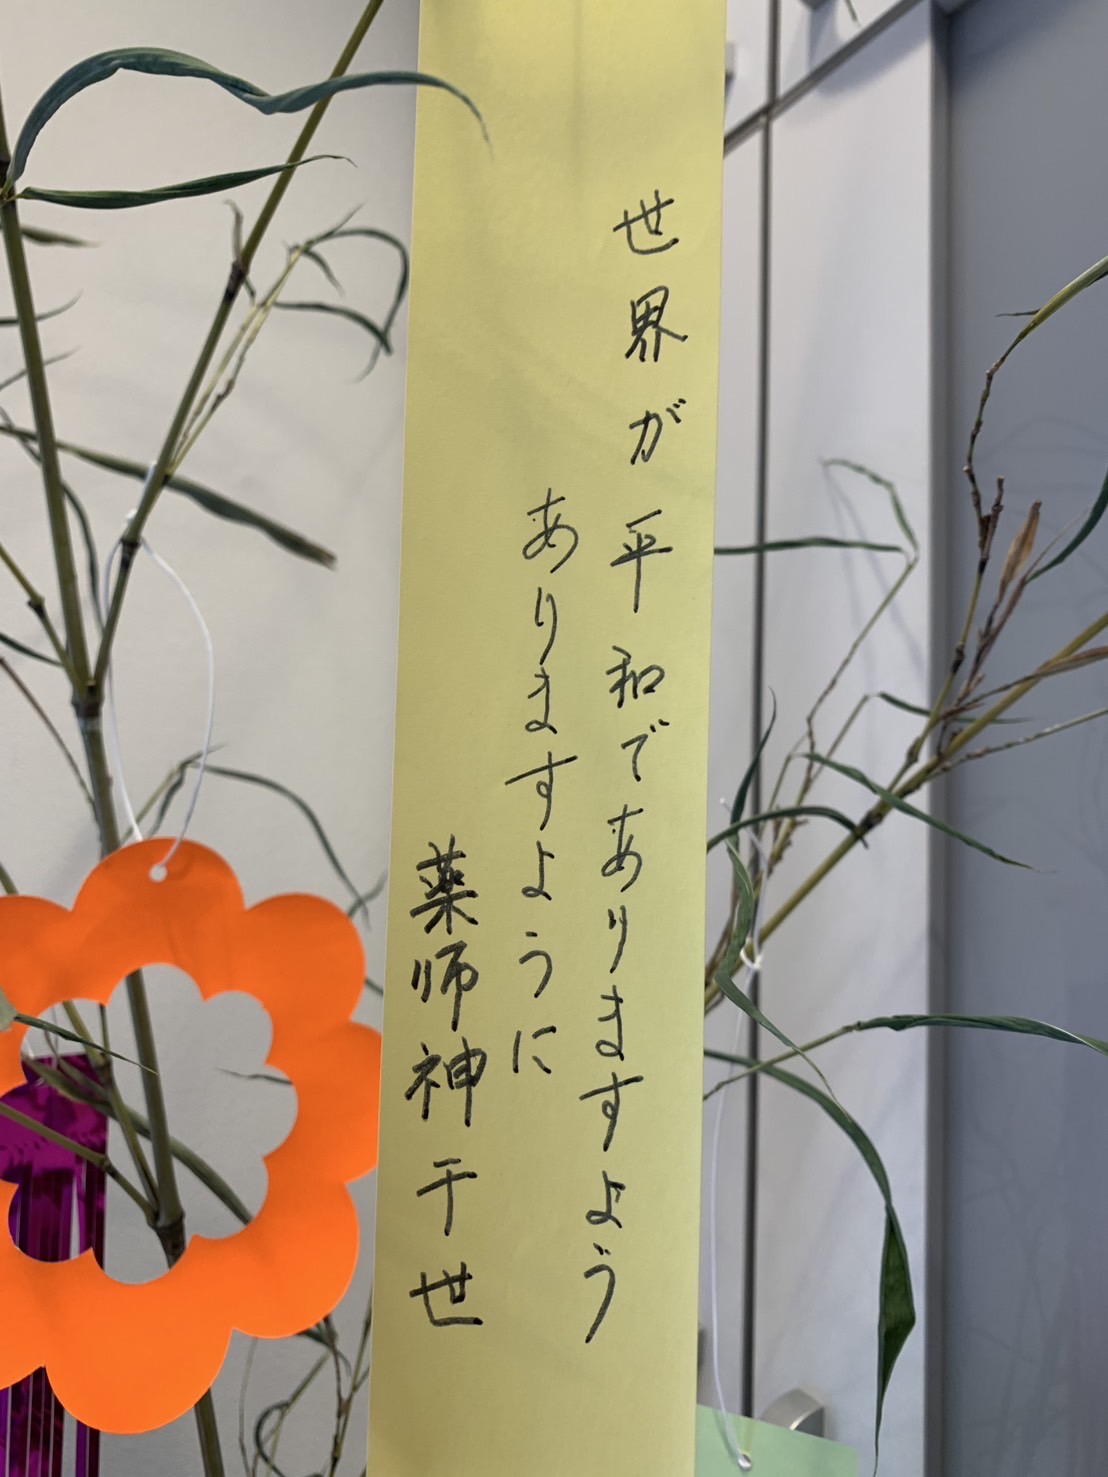 世界が平和でありますよう
ありますように
薬師神千世